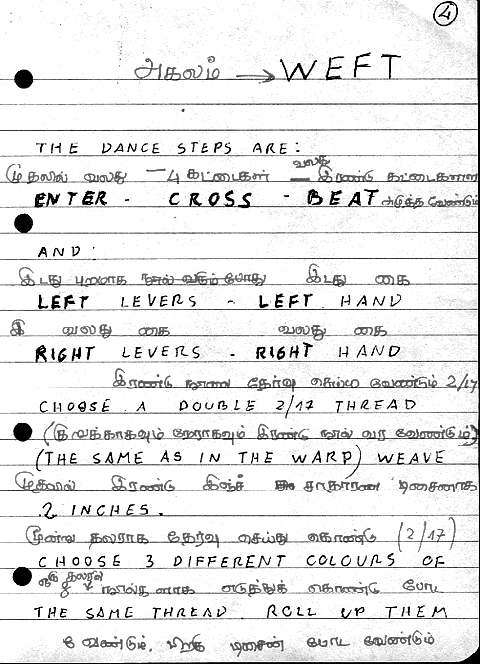 4
அகலம் → WEFT
THE DANCE STEPS ARE:
வலது
முதலில் வலது - 4 கட்டைகள் - இரண்டு கட்டைகளை
ENTER - CROSS - BEAT அடுத்த வேண்டும்
AND:
இடது புறமாக நூல் வரும் போது இடது கை
LEFT LEVERS - LEFT HAND
வலது கை வலது கை
RIGHT LEVERS - RIGHT HAND
இரண்டு நூலை தேர்வு செய்ய வேண்டும் 2/17
CHOOSE A DOUBLE 2/17 THREAD
நேராகவும் இரண்டு நூல் வர வேண்டும்)
(THE SAME AS IN THE WARP) WEAVE
முதலில் இரண்டு இன்ச் சாதாரண டிசைனாக
2 INCHES.
மூன்று கலராக தேர்வு செய்து கொண்டு (2/17)
CHOOSE 3 DIFFERENT COLOURS OF
ஒரு கலரில்
8 எடுத்துக் கொண்டு போட
THE SAME THREAD. ROLL UP THEM
வேண்டும். பிறகு டிசைன் போட வேண்டும்